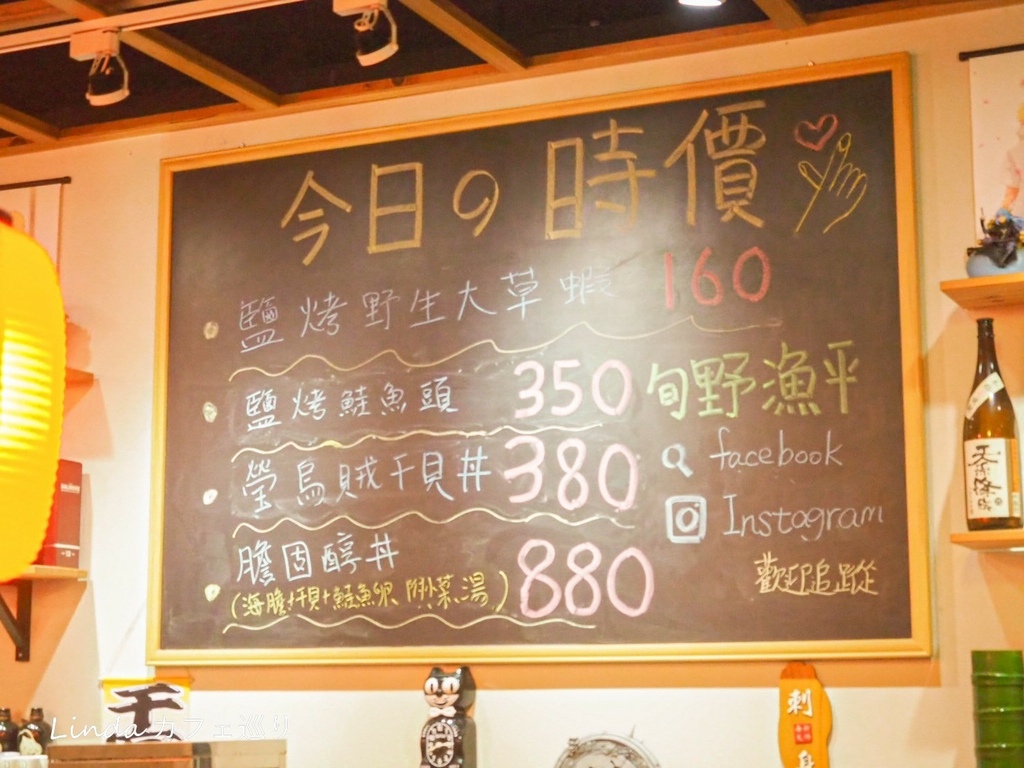 今日の時價
鹽烤野生大草蝦 160
鹽烤鮭魚頭 350
螢烏賊干貝丼 380
膽固醇丼 880
(海膽+干貝+鮭魚卵 附菜湯)
旬野漁平
facebook
Instagram
歡迎追蹤
天賦降臨
刺身
Linda カフェ巡り